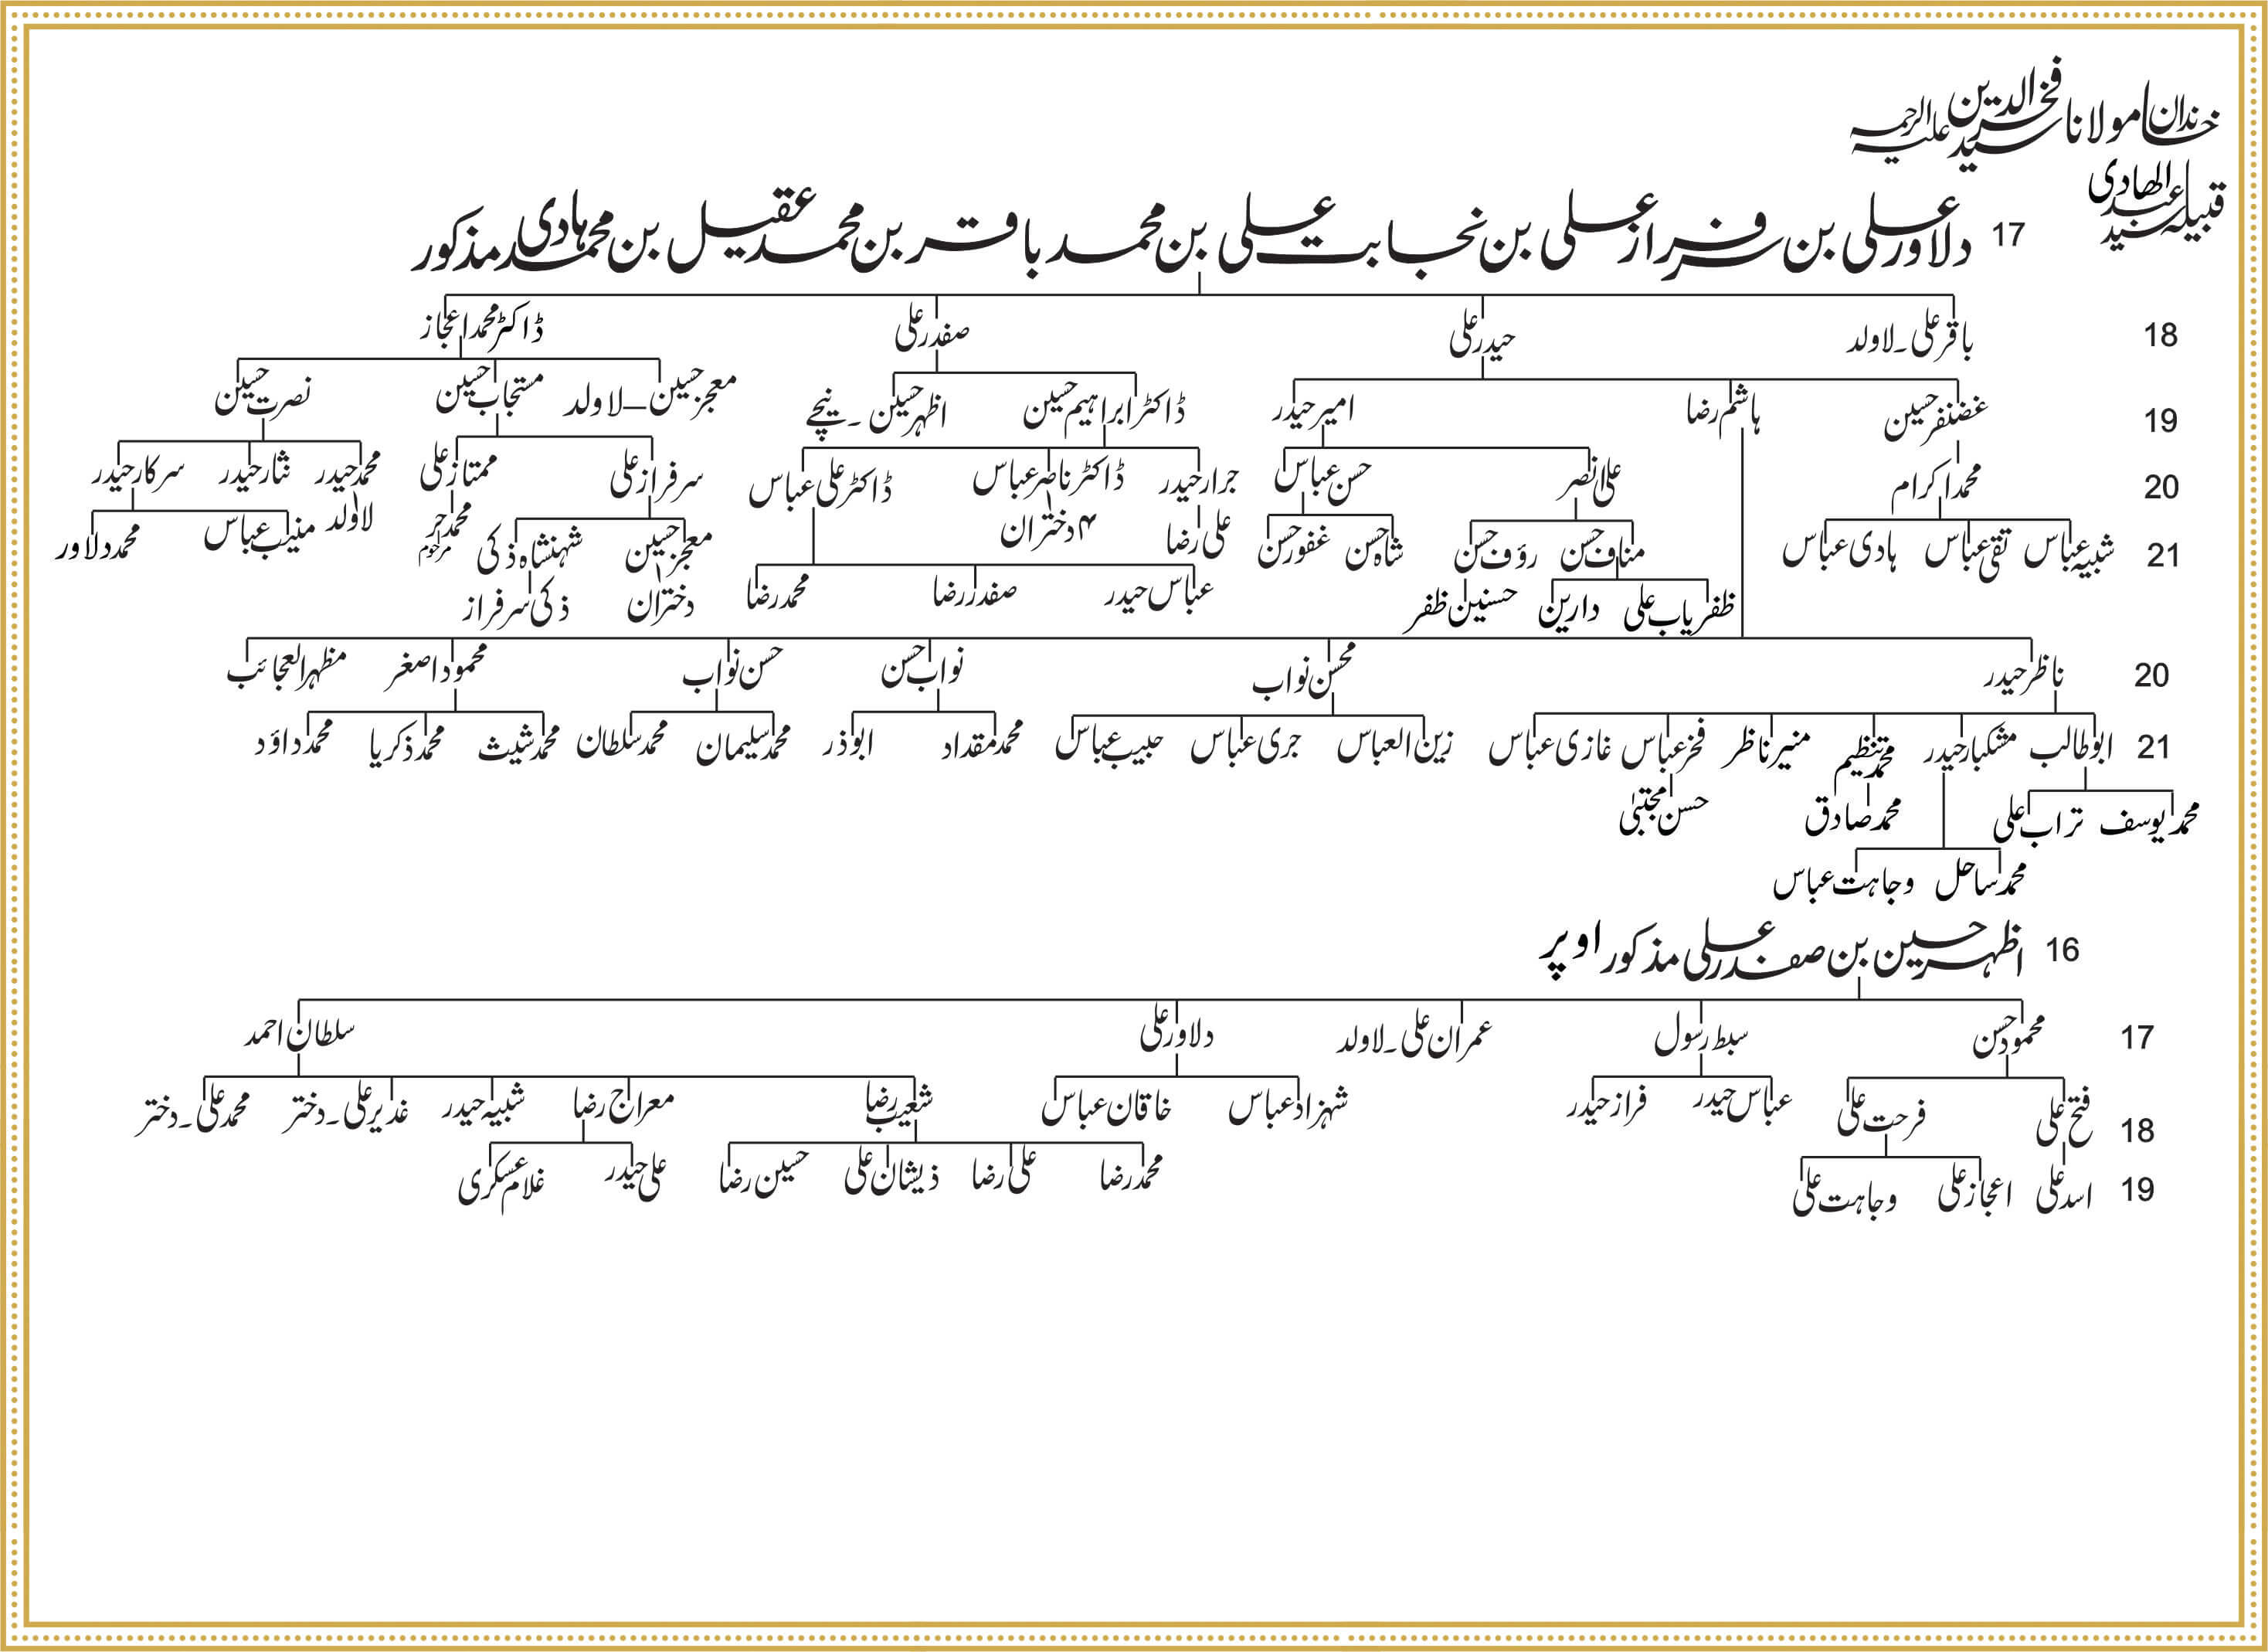 خاندان مولانا سید فخر الدین علیہ الرحمہ
قبیلہ سید عبد الھادی
17 دلاور علی بن سرفراز علی بن نجابت علی بن محمد باقر بن محمد عقیل بن محمد ہادی مذکور
18 باقر علی۔لاولد حیدر علی صفدر علی ڈاکٹر محمد اعجاز
19 غضنفر حسین ہاشم رضا امیر حیدر ڈاکٹر ابراہیم حسین اظہر حسین ۔ نیچے معجز حسین–لاولد مستجاب حسین نصرت حسین
20 محمد اکرام علی انصر حسن عباس جرار حیدر ڈاکٹر ناصر عباس ڈاکٹر علی عباس سرفراز علی ممتاز علی محمد حیدر نثار حیدر سرکار حیدر
21 شبیہ عباس تقی عباس ہادی عباس مناف حسن رؤف حسن شاہ حسن غفور حسن علی رضا ۴ دختران معجز حسین شہنشاہ ذکی محمد حر مرحوم لاولد منیب عباس محمد دلاور
ظفریاب علی دارین حسنین ظفر عباس حیدر صفدر رضا محمد رضا دختران ذکی سرفراز
20 ناظر حیدر محسن نواب نواب حسن حسن نواب محمود اصغر مظہر العجائب
21 ابوطالب مشکبار حیدر محمد تنظیم منیر ناظر فخر عباس غازی عباس زین العباس جری عباس حبیب عباس محمد مقداد ابوذر محمد سلیمان محمد سلطان محمد شیث محمد ذکریا محمد داؤد
محمد یوسف تراب علی محمد صادق حسن مجتبیٰ
محمد ساحل وجاہت عباس
16 اظہر حسین بن صفدر علی مذکور اوپر
17 محمود حسن سبط رسول عمران علی۔لاولد دلاور علی سلطان احمد
18 فتح علی فرحت علی عباس حیدر فراز حیدر شہزاد عباس خاقان عباس شعیب رضا معراج رضا شبیہ حیدر غدیر علی۔دختر محمد علی۔دختر
19 اسد علی اعجاز علی وجاہت علی محمد رضا علی رضا ذیشان علی حسین رضا علی حیدر غلام عسکری